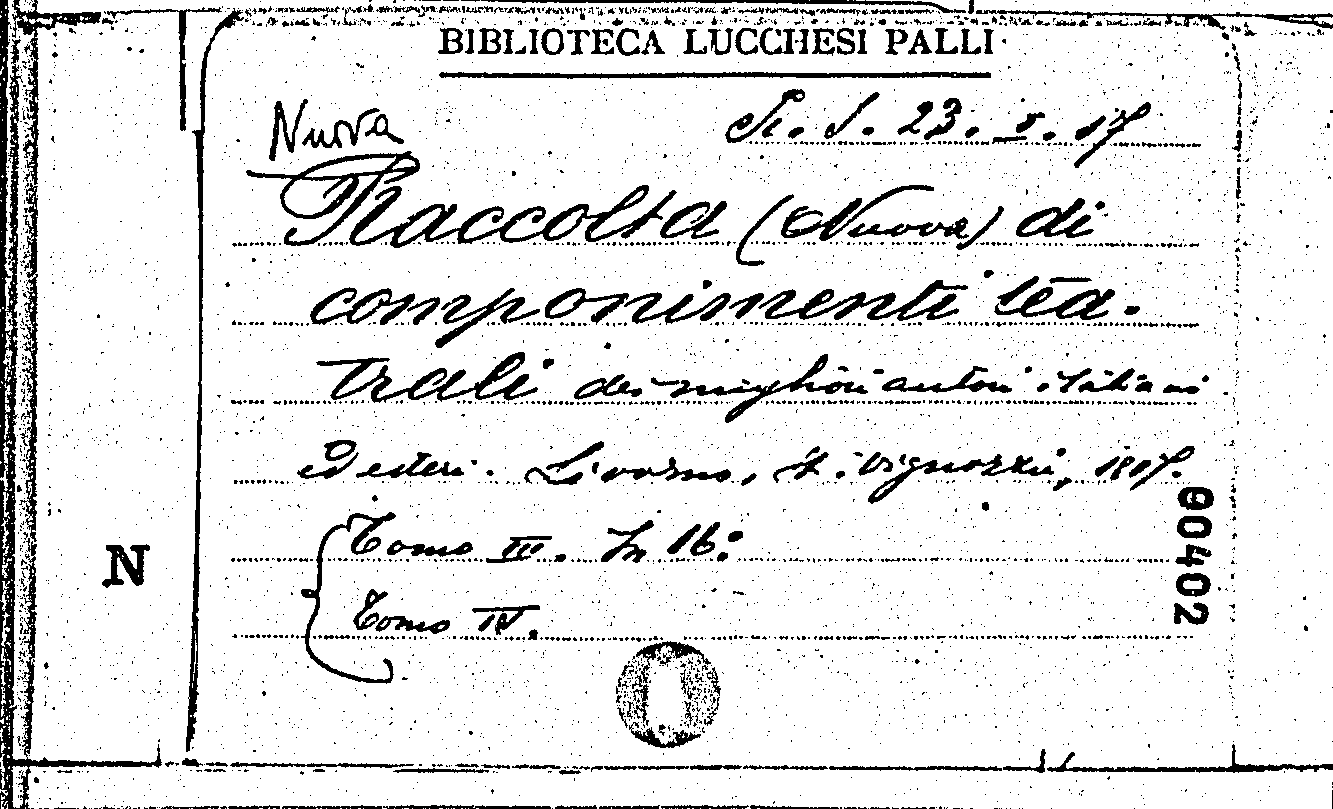 BIBLIOTECA LUCCHESI PALLI
Nuova
R. S. 23. V. 17
Raccolta (Nuova) di
componimenti tea-
trali dei migliori autori italiani
ed esteri. Livorno, Vignozzi, 18
Tomo III. In 16:
Tomo IV.
N
00402